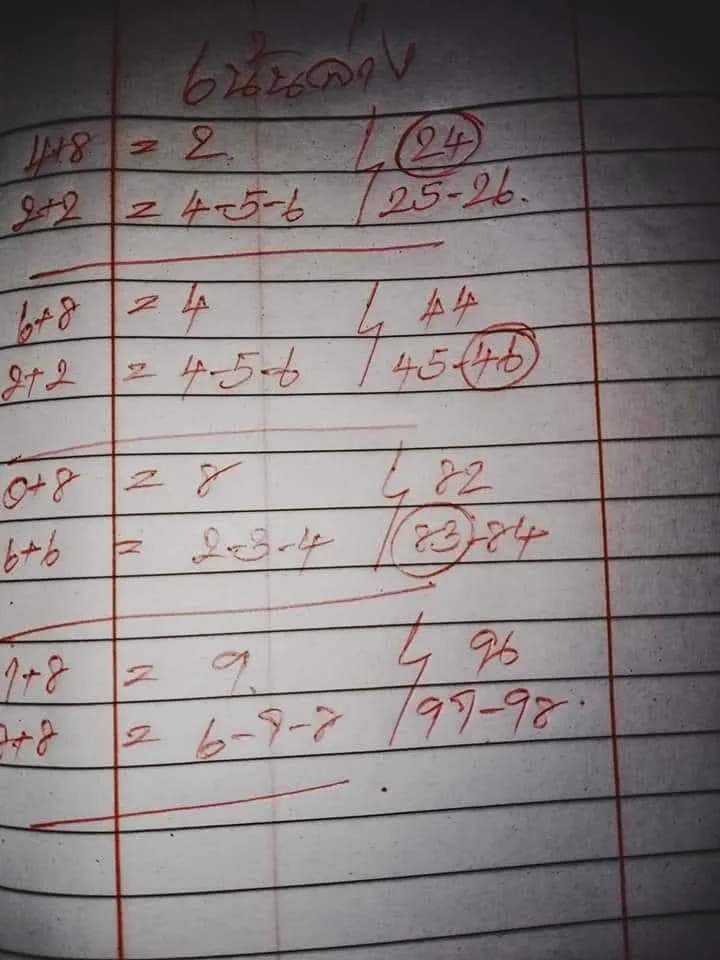 เน้นล่าง
4+8 = 2 24
2+2 = 4-5-6 25-26.
6+8 = 4 44
2+2 = 4-5-6 45-46
0+8 = 8 82
6+6 = 2-3-4 83-84
1+8 = 9. 96
8+8 = 6-7-8 97-98.